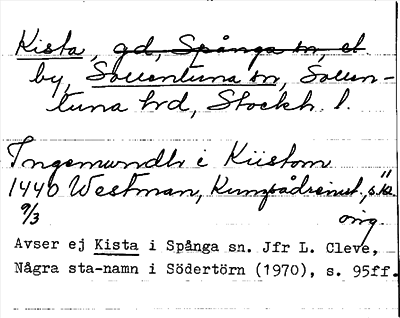 Kista, gd, Spånga sn, et
by, Sollentuna sn, Sollen-
tuna hd, Stockh. l.
Ingemundh i Kiistom
1440 Westman, Kungsådreinst., s.
9/3 orig.
Avser ej Kista i Spånga sn. Jfr L. Cleve,
Några sta-namn i Södertörn (1970), s. 95ff.